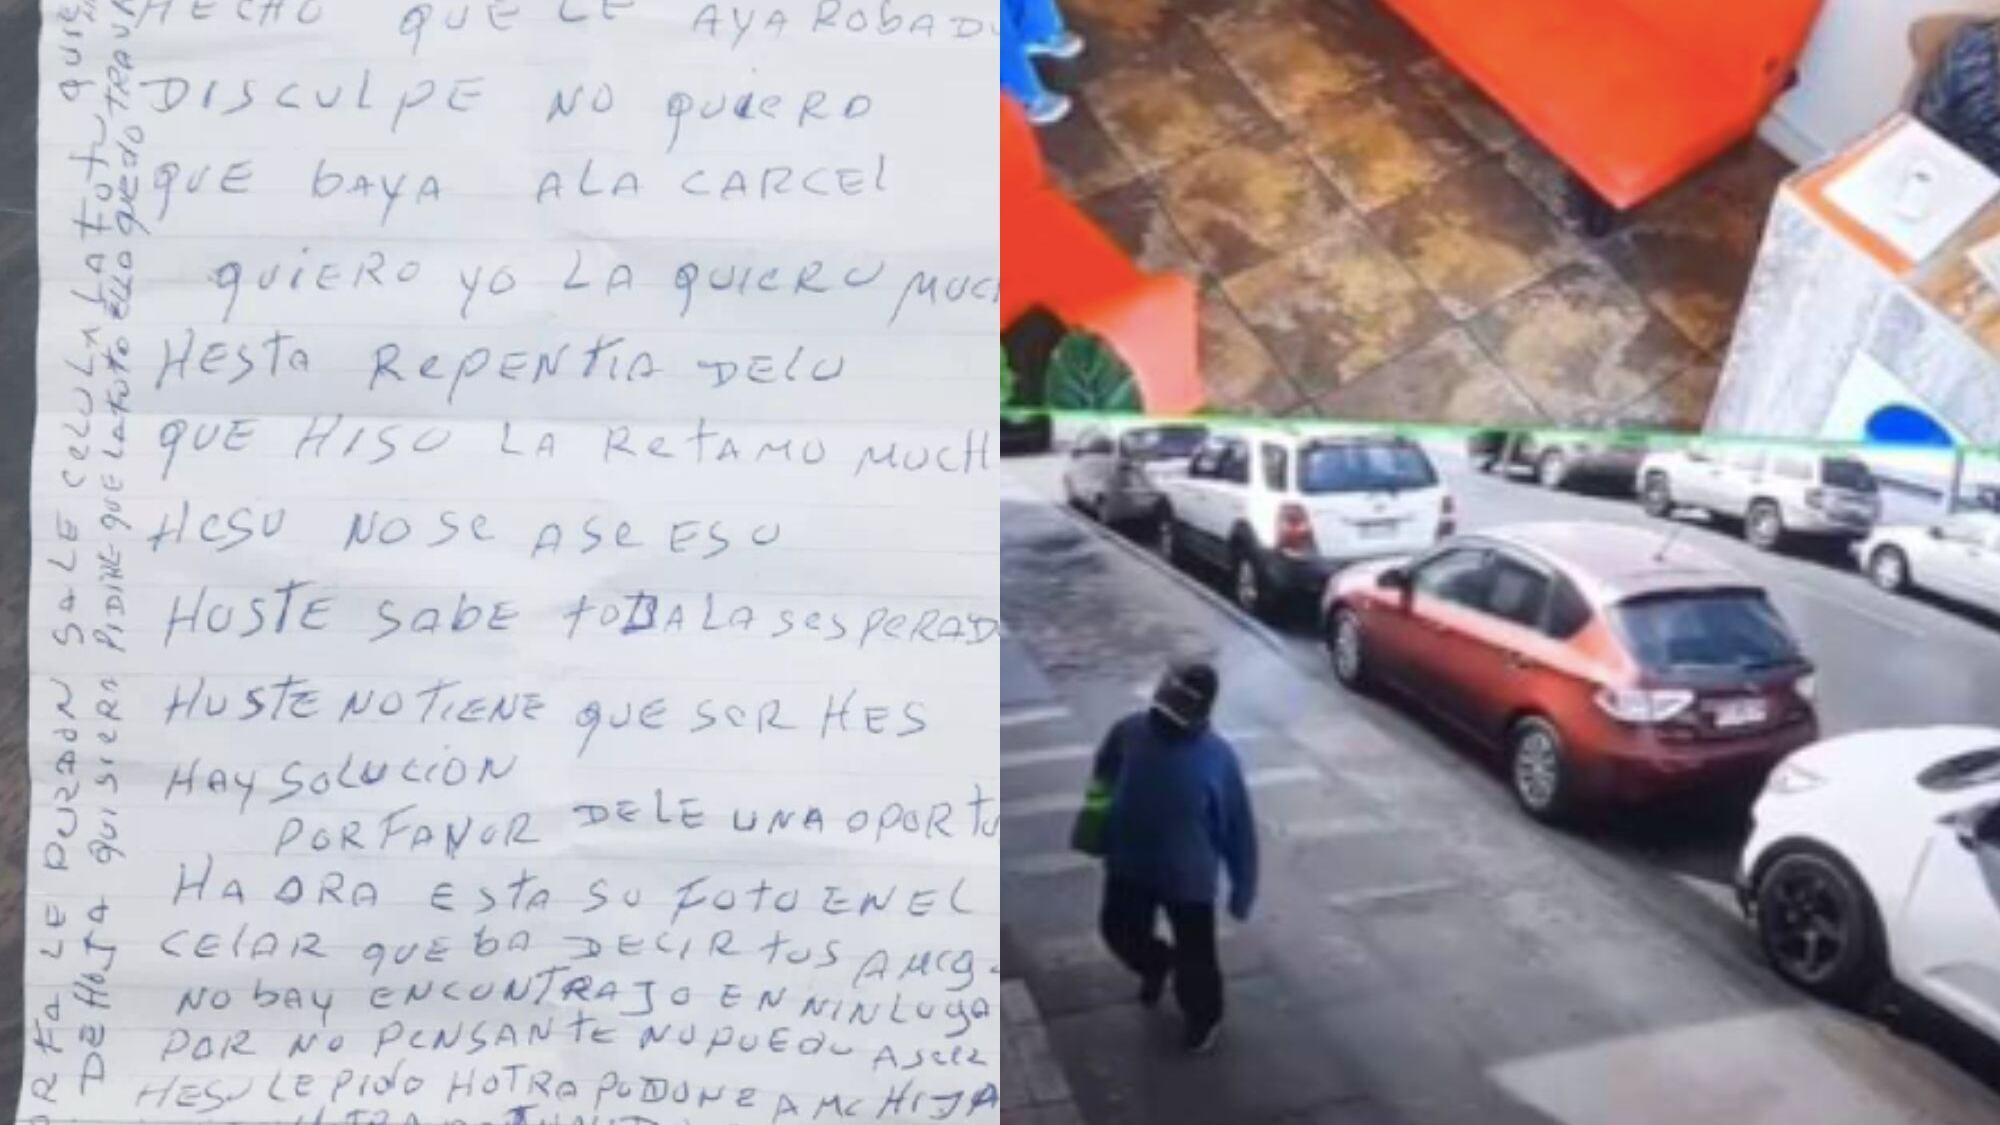 HECHO QUE LE AYA ROBADO
DISCULPE NO QUIERO
QUE BAYA ALA CARCEL
QUIERO YO LA QUIERU MUCH
HESTA REPENTIA DELU
QUE HISO LA RETAMO MUCH
HESU NO SE ASE ESU
HUSTE SABE TODA LA SESPERAD
HUSTE NO TIENE QUE SER HES
HAY SOLUCION
POR FANOR DELE UNA OPORTU
HAORA ESTA SU FOTO EN EL
CELAR QUE BA DECIR TUS AMIG
NO BAY ENCONTRAJO EN NINLUGA
POR NO PENSANTE NO PUEDU ASER
HESU LE PIDO HOTRA PUDONE A MC HIJA
OR FA LE DURADON SALE CELULA LA FOTU QUIE
DE HOJA QUISIERA PIDIRLE QUE LA FOTO ELLA QUEDO TRAU